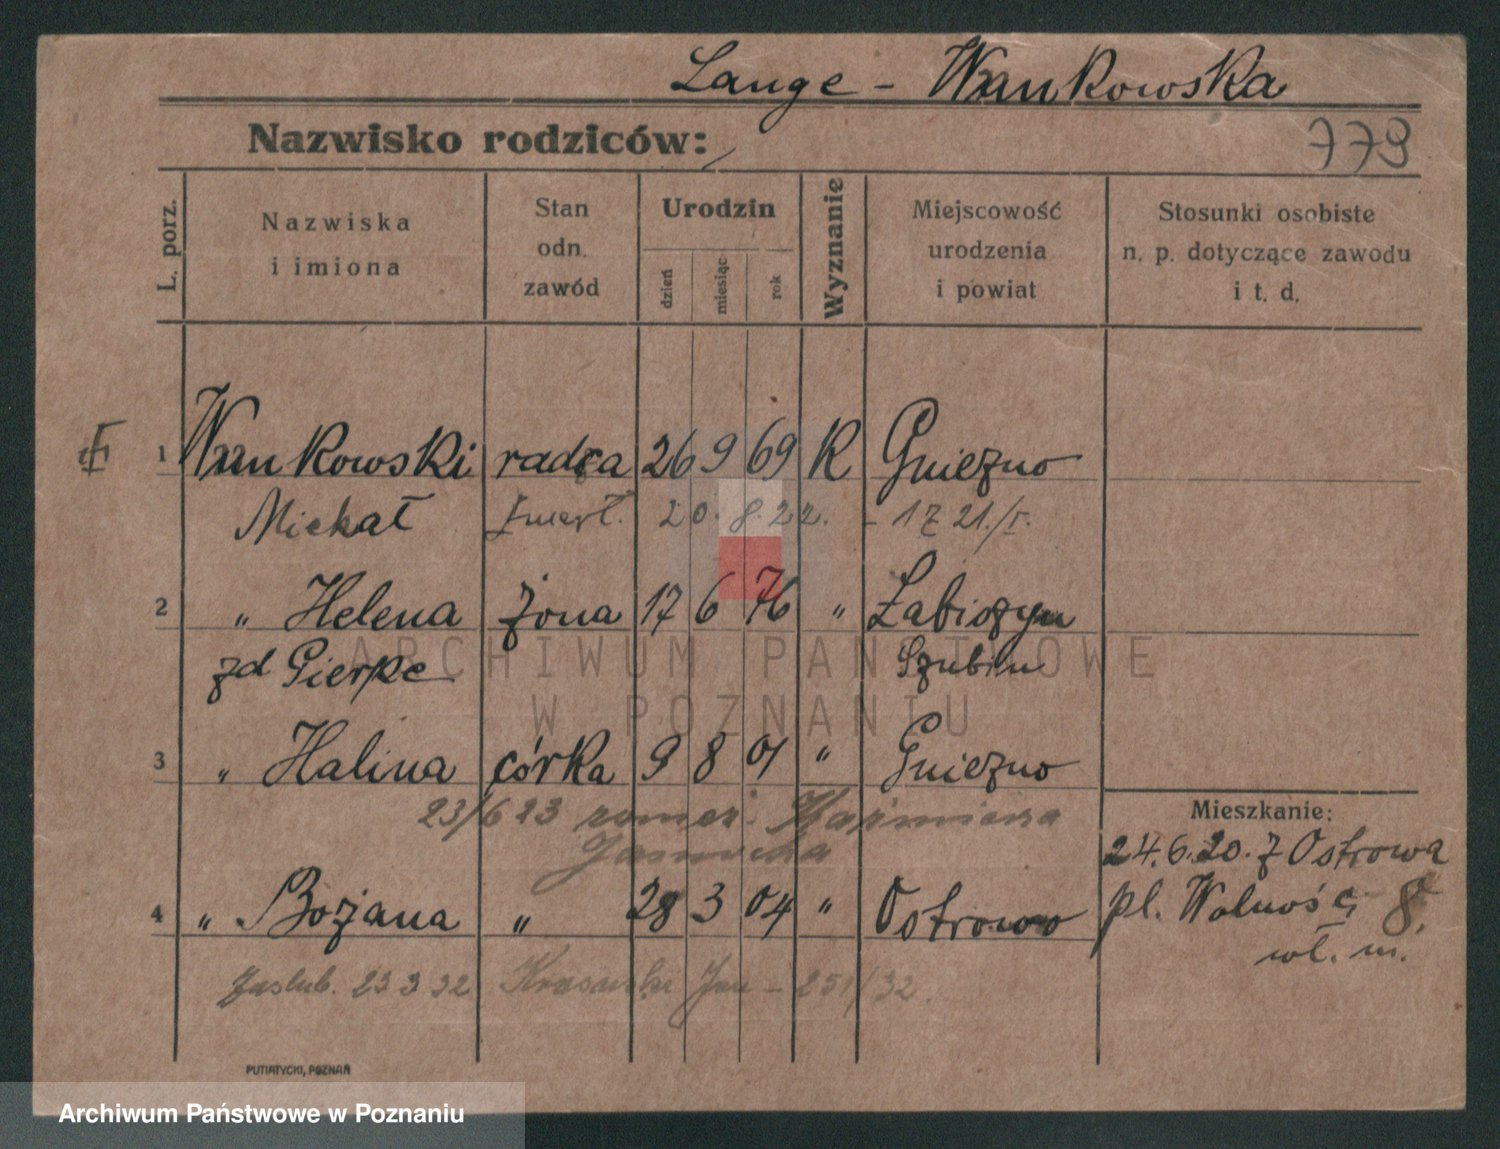 Lange - Wankowska
Nazwisko rodziców:
779
L. porz.
Nazwiska i imiona
Stan odn. zawód
Urodzin
dzień
miesiąc
rok
Wyznanie
Miejscowość urodzenia i powiat
Stosunki osobiste n. p. dotyczące zawodu i t. d.
1 Wankowski radca 26 9 69 K Gniezno
Michał Zmarł. 20.8.22. - 17 21./I.
2 „ Helena żona 17 6 76 „ Łabiszyn
zd Gierke Szubin
3 „ Halina córka 9 8 01 „ Gniezno
23/6 23 Kaźmierza
Mieszkanie:
24.6.20. z Ostrowa
4 „ Bożana „ 28 3 04 „ Ostrowo
pl. Wolności 8.
wł. m.
Zaslub. 23 3 32 Jan - 251/32.
PUTIATYCKI, POZNAŃ
ARCHIWUM PAŃSTWOWE
W POZNANIU
Archiwum Państwowe w Poznaniu